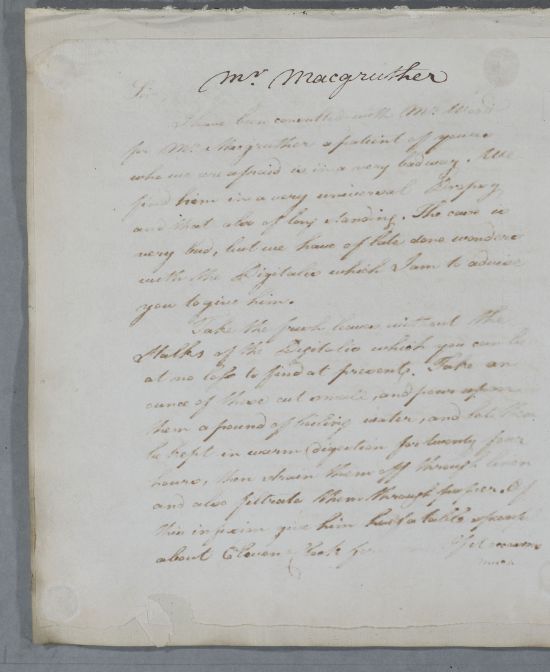 Mr. Macgruther
Sir,
I have been consulted with Mr. Wood
for Mr. Macgruther a patient of yours
who we are afraid is in a very bad way. We
find him in a very universal Dropsy
and that also of long standing. The case is
very bad, but we have of late done wonders
with the Digitalis which I am to advise
you to give him.
Take the fresh leaves without the
Stalks of the Digitalis which you can be
at no loss to find at present. Take an
ounce of these cut small, and pour upon
them a pound of boiling water, and let them
be kept in warm digestion for twenty four
hours, then strain them off through linen
and also filtrate them through paper. Of
this infusion give him half a table spoonful
about Eleven o'Clock